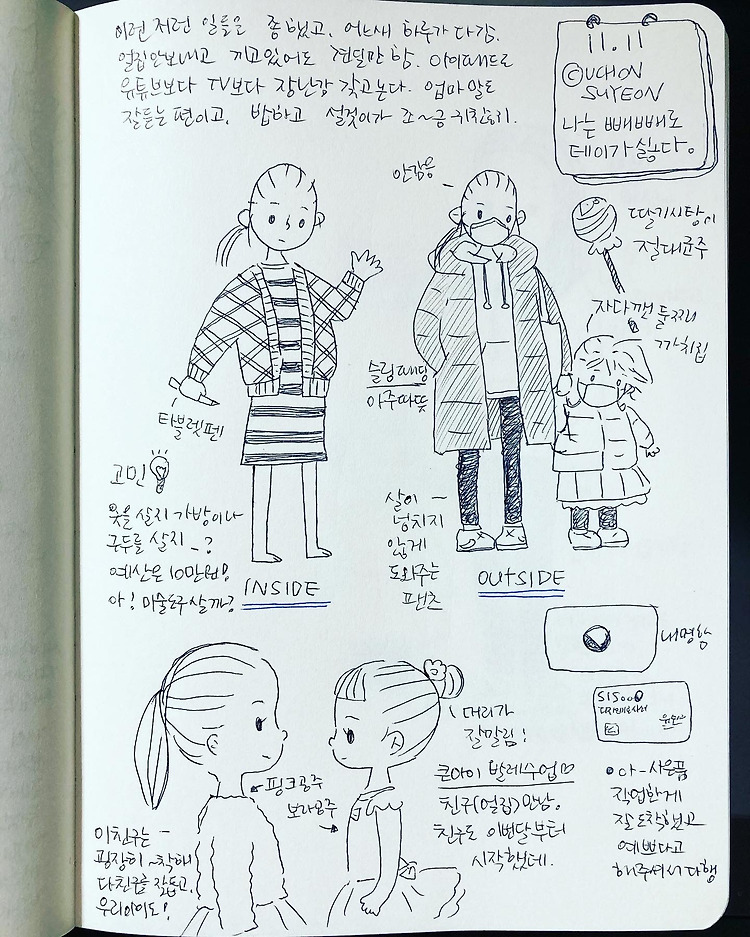 이런 저런 일들을 좀 했고, 어느새 하루가 다감.
얼집안보내고 끼고있어도 견딜만 함. 아이패드로
유튜브보다 TV보다 장난감 갖고논다. 엄마말도
잘듣는 편이고, 밥하고 설겆이가 조~금 귀찮으리.
11.11
©UCHON
SUYEON
나는 빼빼로
데이가 싫다.
안감음
딸기사탕이
절대군주
자다깬 둘째
까치집
슬링패딩
아주따뜻
타블렛펜!
고민
옷을 살지 가방이나
구두를 살지 -?
예산은 10만원!
아! 미술도구살까?
INSIDE
살이
넘치지
않게
도와주는
팬츠
OUTSIDE
내명함
머리가
잘말림!
핑크공주
보라공주
큰아이 발레수업
친구(얼집)만남.
친구도 이번달부터
시작했데.
이친구는
굉장히~착해
다친구를 잘돕고,
우리아이도!
작업한게
잘도착했고
예쁘다고
해주셔서 다행